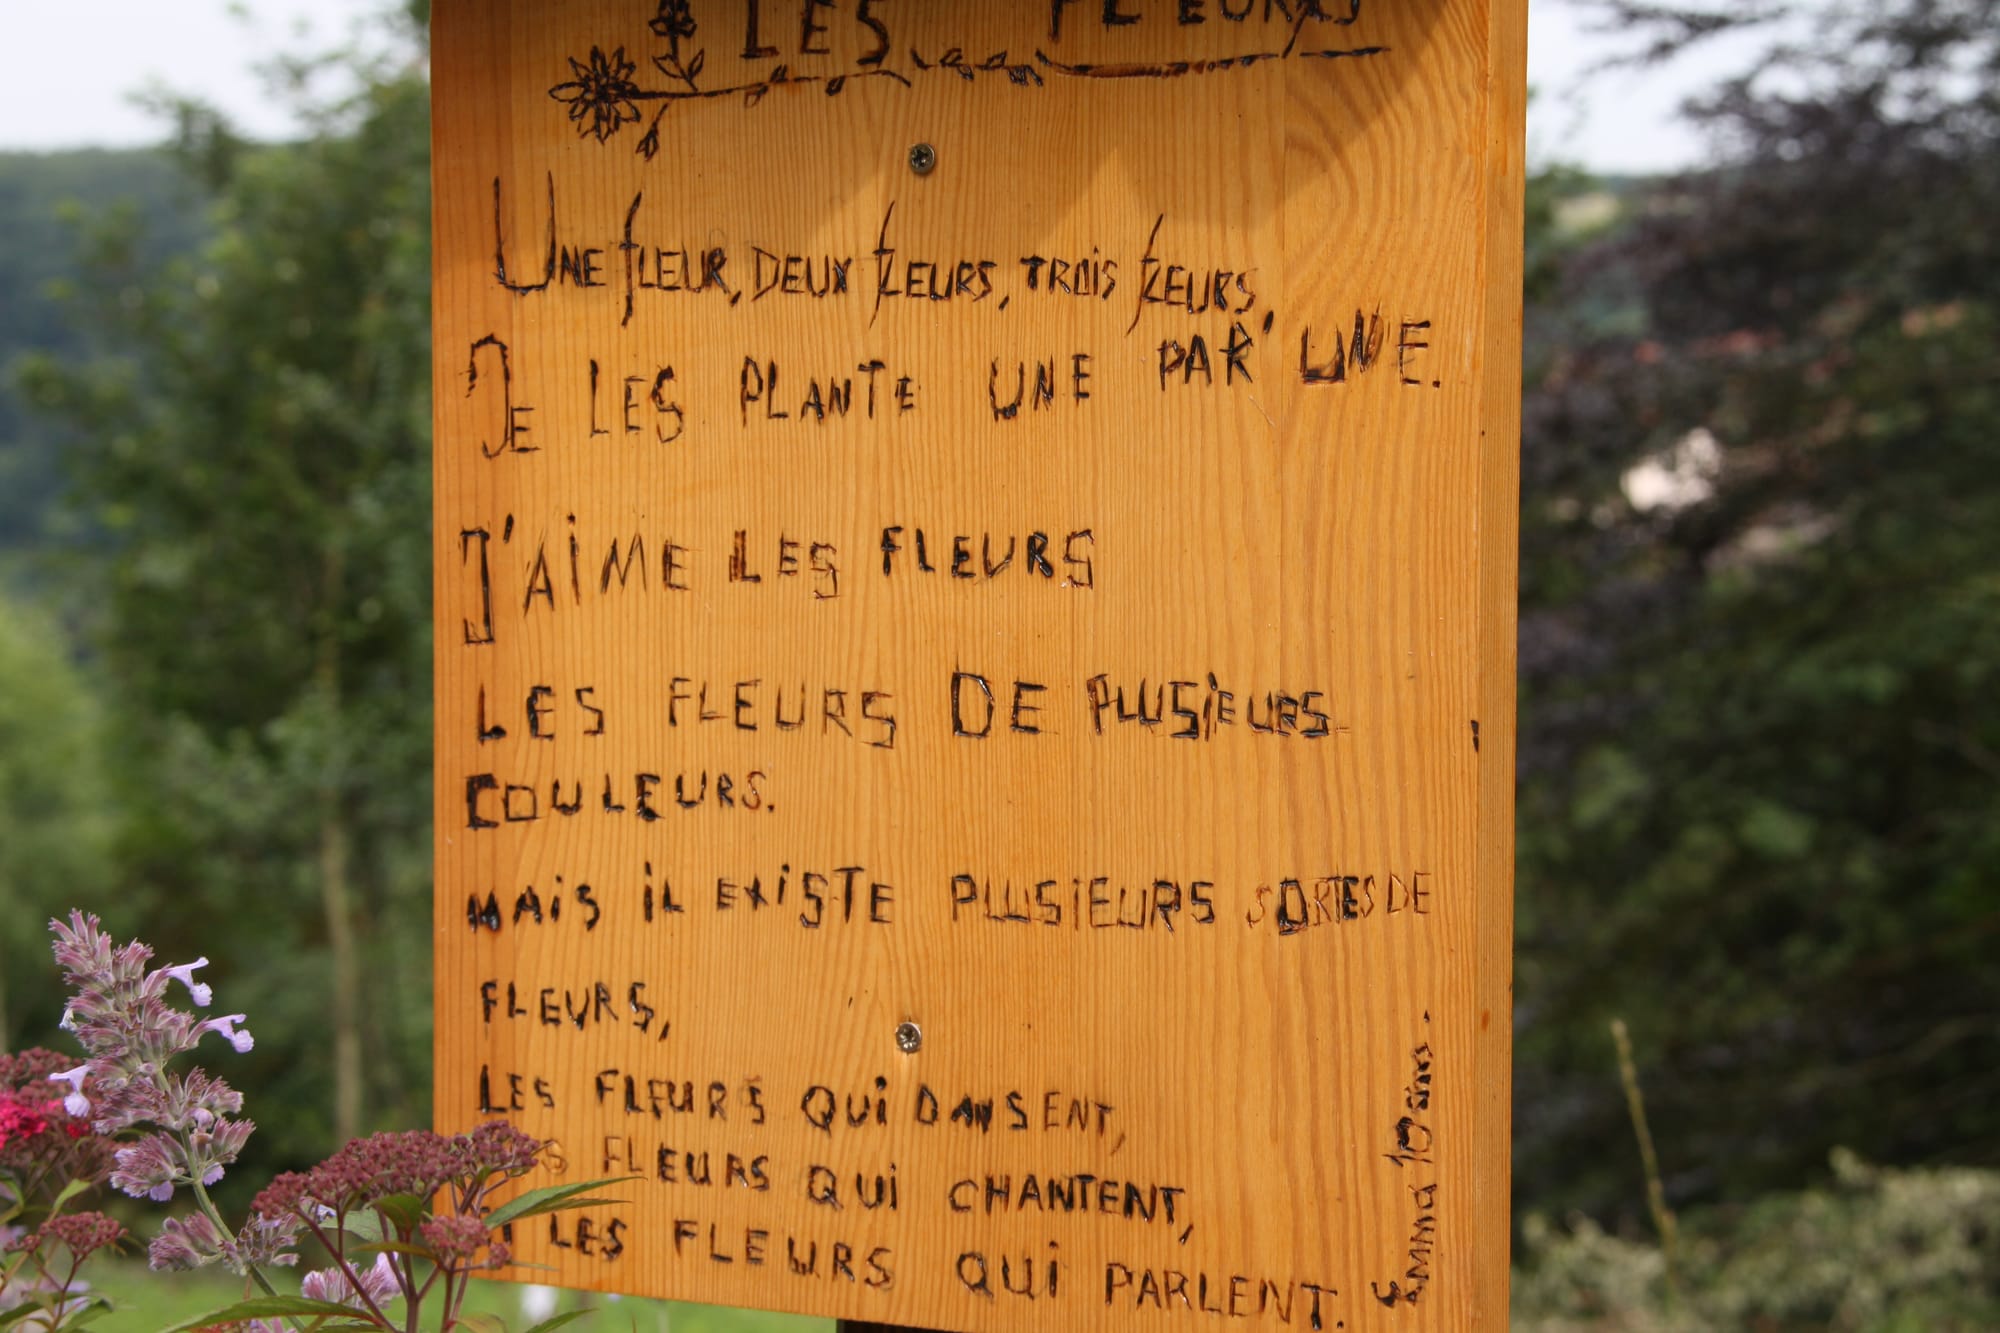 LES FLEURS
UNE FLEUR, DEUX FLEURS, TROIS FLEURS,
JE LES PLANTE UNE PAR' UNE.
J'AIME LES FLEURS
LES FLEURS DE PLUSIEURS
COULEURS.
MAIS IL EXISTE PLUSIEURS SORTES DE
FLEURS,
LES FLEURS QUI DANSENT,
FLEURS QUI CHANTENT,
LES FLEURS QUI PARLENT.
Emma 10 ans.